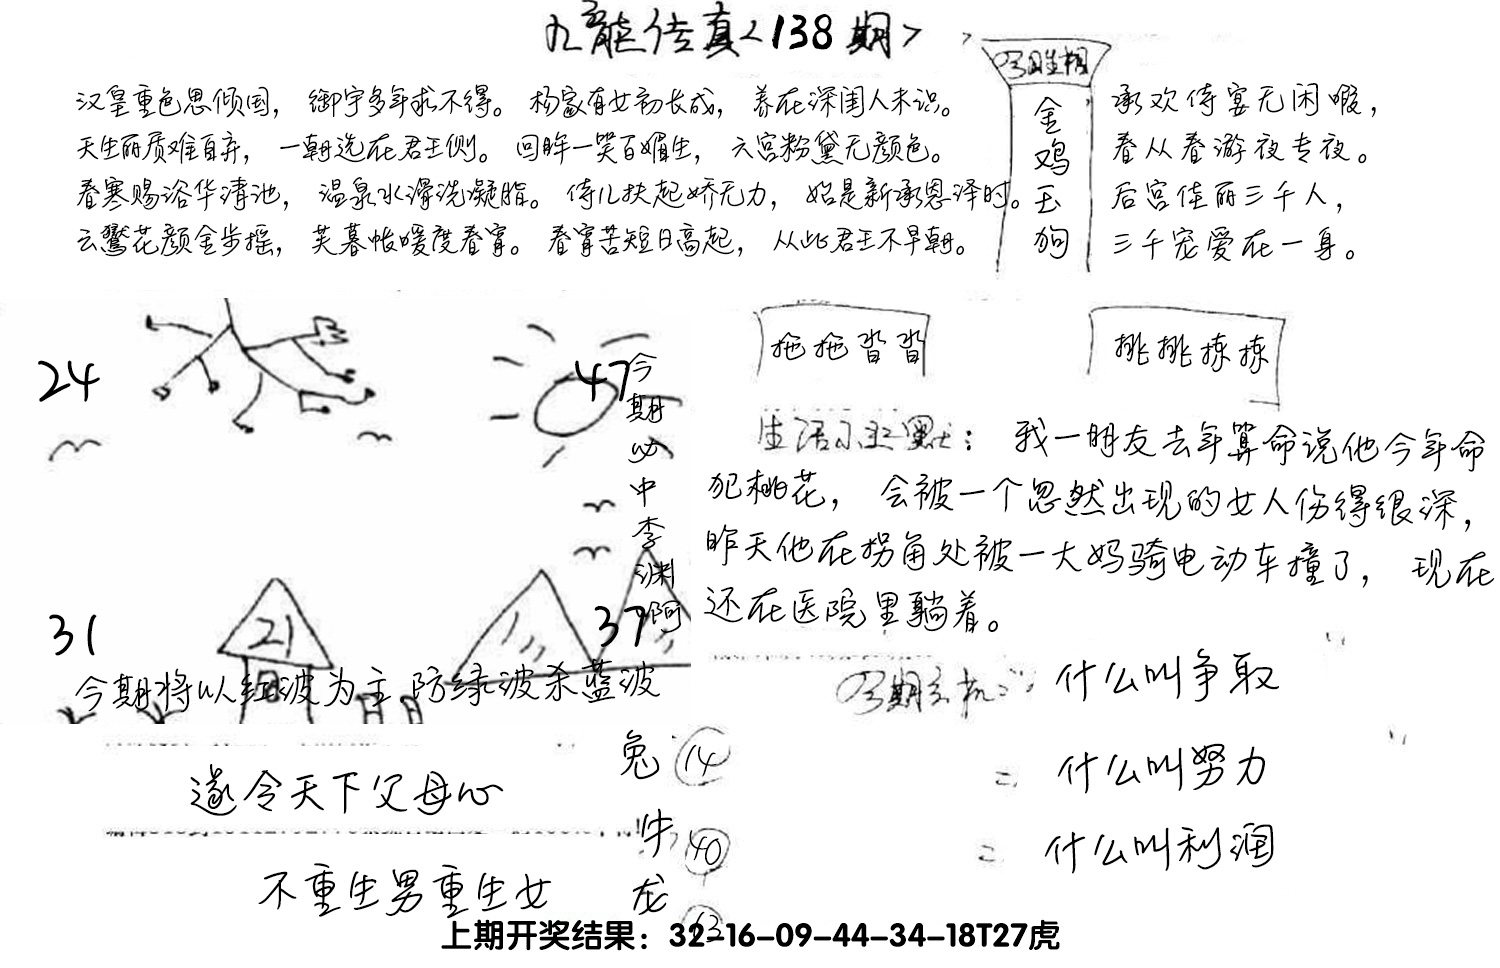 九龙传真<138期>
今日生相
金鸡玉狗
汉皇重色思倾国，御宇多年求不得。杨家有女初长成，养在深闺人未识。
天生丽质难自弃，一朝选在君王侧。回眸一笑百媚生，六宫粉黛无颜色。
春寒赐浴华清池，温泉水滑洗凝脂。侍儿扶起娇无力，始是新承恩泽时。
云鬓花颜金步摇，芙暮帐暖度春宵。春宵苦短日高起，从此君王不早朝。
承欢侍宴无闲暇，
春从春游夜专夜。
后宫佳丽三千人，
三千宠爱在一身。
24
47
今期必中李渊阿
31
21
37
今期将以红波为主 防绿波杀蓝波
拖拖沓沓
挑挑拣拣
生活小幽默：我一朋友去年算命说他今年命
犯桃花，会被一个忽然出现的女人伤得很深，
昨天他在拐角处被一大妈骑电动车撞了，现在
还在医院里躺着。
今期玄机：什么叫争取
= 什么叫努力
= 什么叫利润
遂令天下父母心
不重生男重生女
兔 14
牛 40
龙
上期开奖结果：32-16-09-44-34-18T27虎